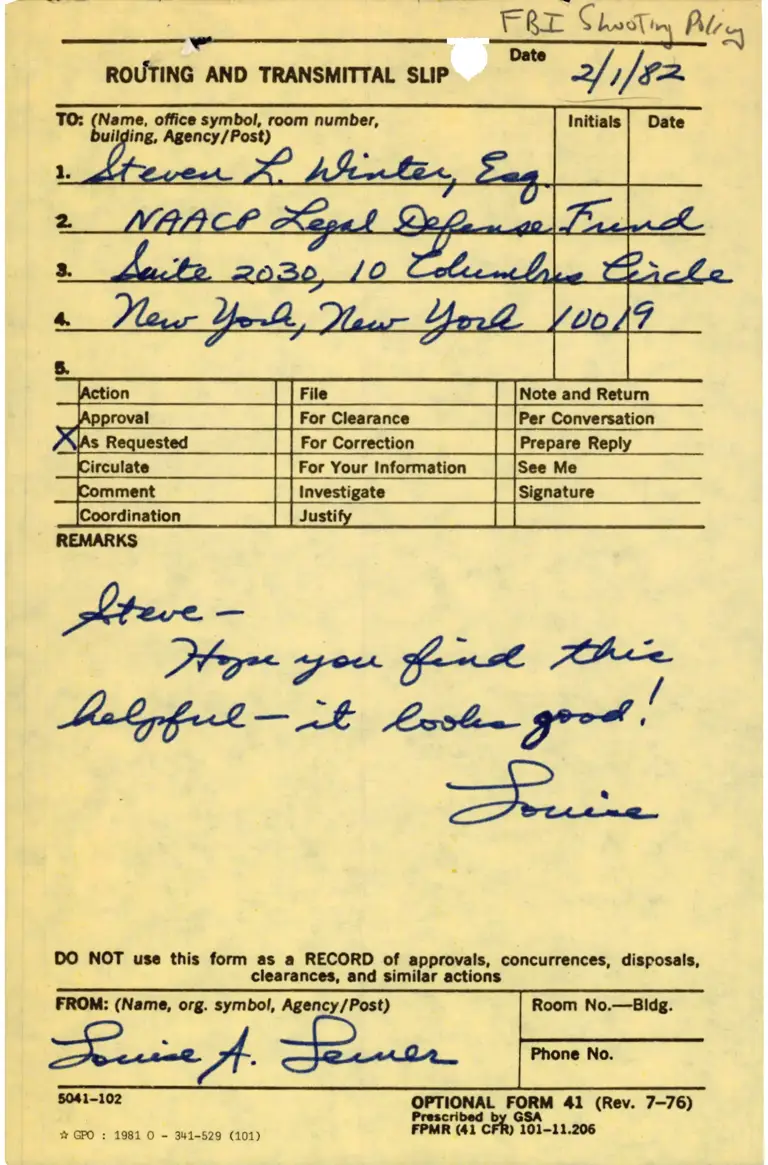 FBI Shooting Policy
Date
ROUTING AND TRANSMITTAL SLIP
2/1/82
TO: (Name, office symbol, room number,
building, Agency/Post)
Initials
Date
1. Steven L. Winter, Esq.
2. NAACP Legal Defense Fund
3. Suite 2030, 10 Columbus Circle
4. New York, New York 10019
5.
Action File Note and Return
Approval For Clearance Per Conversation
X As Requested For Correction Prepare Reply
Circulate For Your Information See Me
Comment Investigate Signature
Coordination Justify
REMARKS
Steve —
Hope you find this
helpful — it looks good!
Louise
DO NOT use this form as a RECORD of approvals, concurrences, disposals,
clearances, and similar actions
FROM: (Name, org. symbol, Agency/Post)
Room No.—Bldg.
Louise A. Lerner
Phone No.
5041-102
OPTIONAL FORM 41 (Rev. 7-76)
Prescribed by GSA
☆ GPO : 1981 O - 341-529 (101)
FPMR (41 CFR) 101-11.206